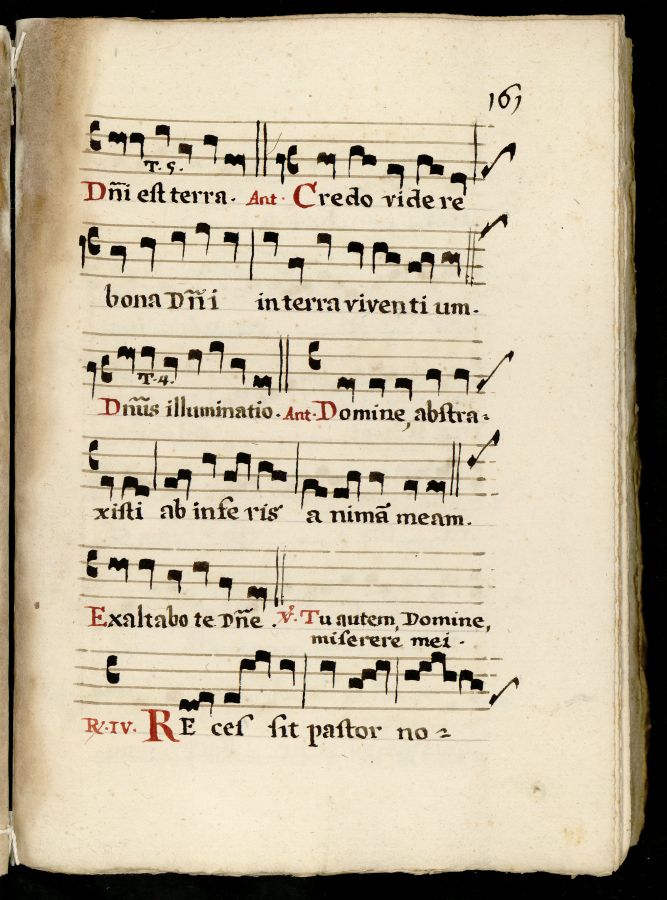 161
T. 5.
Dn̄i est terra. Ant. Credo videre
bona Dn̄i in terra viventium.
T. 4.
Dn̄us illuminatio. Ant. Domine, abstra-
xisti ab inferis animā meam.
Exaltabo te Dn̄e. ℣. Tu autem, Domine,
miserere mei.
℟. IV. REcessit pastor no-